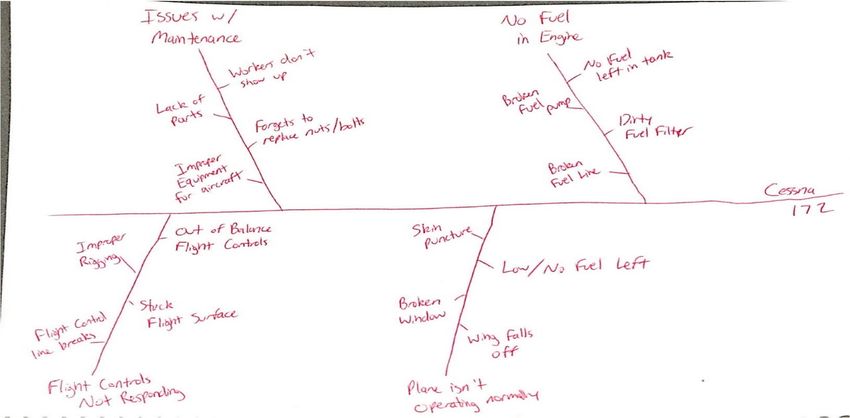 Issues w/
Maintenance
Workers don't
show up
Lack of
parts
Forgets to
replace nuts/bolts
Improper
Equipment
for aircraft
No Fuel
in Engine
No Fuel
left in tank
Broken
Fuel pump
Dirty
Fuel Filter
Broken
Fuel Line
Cessna
172
Out of Balance
Flight Controls
Improper
Rigging
Stuck
Flight Surface
Flight Control
line breaks
Flight Controls
Not Responding
Skin
Puncture
Low/No Fuel Left
Broken
Window
Wing Falls
off
Plane isn't
operating normally